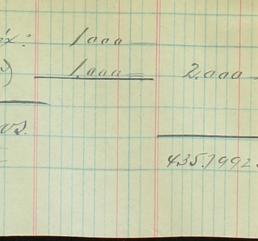 ix: 1.000
) 1.000 2.000
os.
435.1992